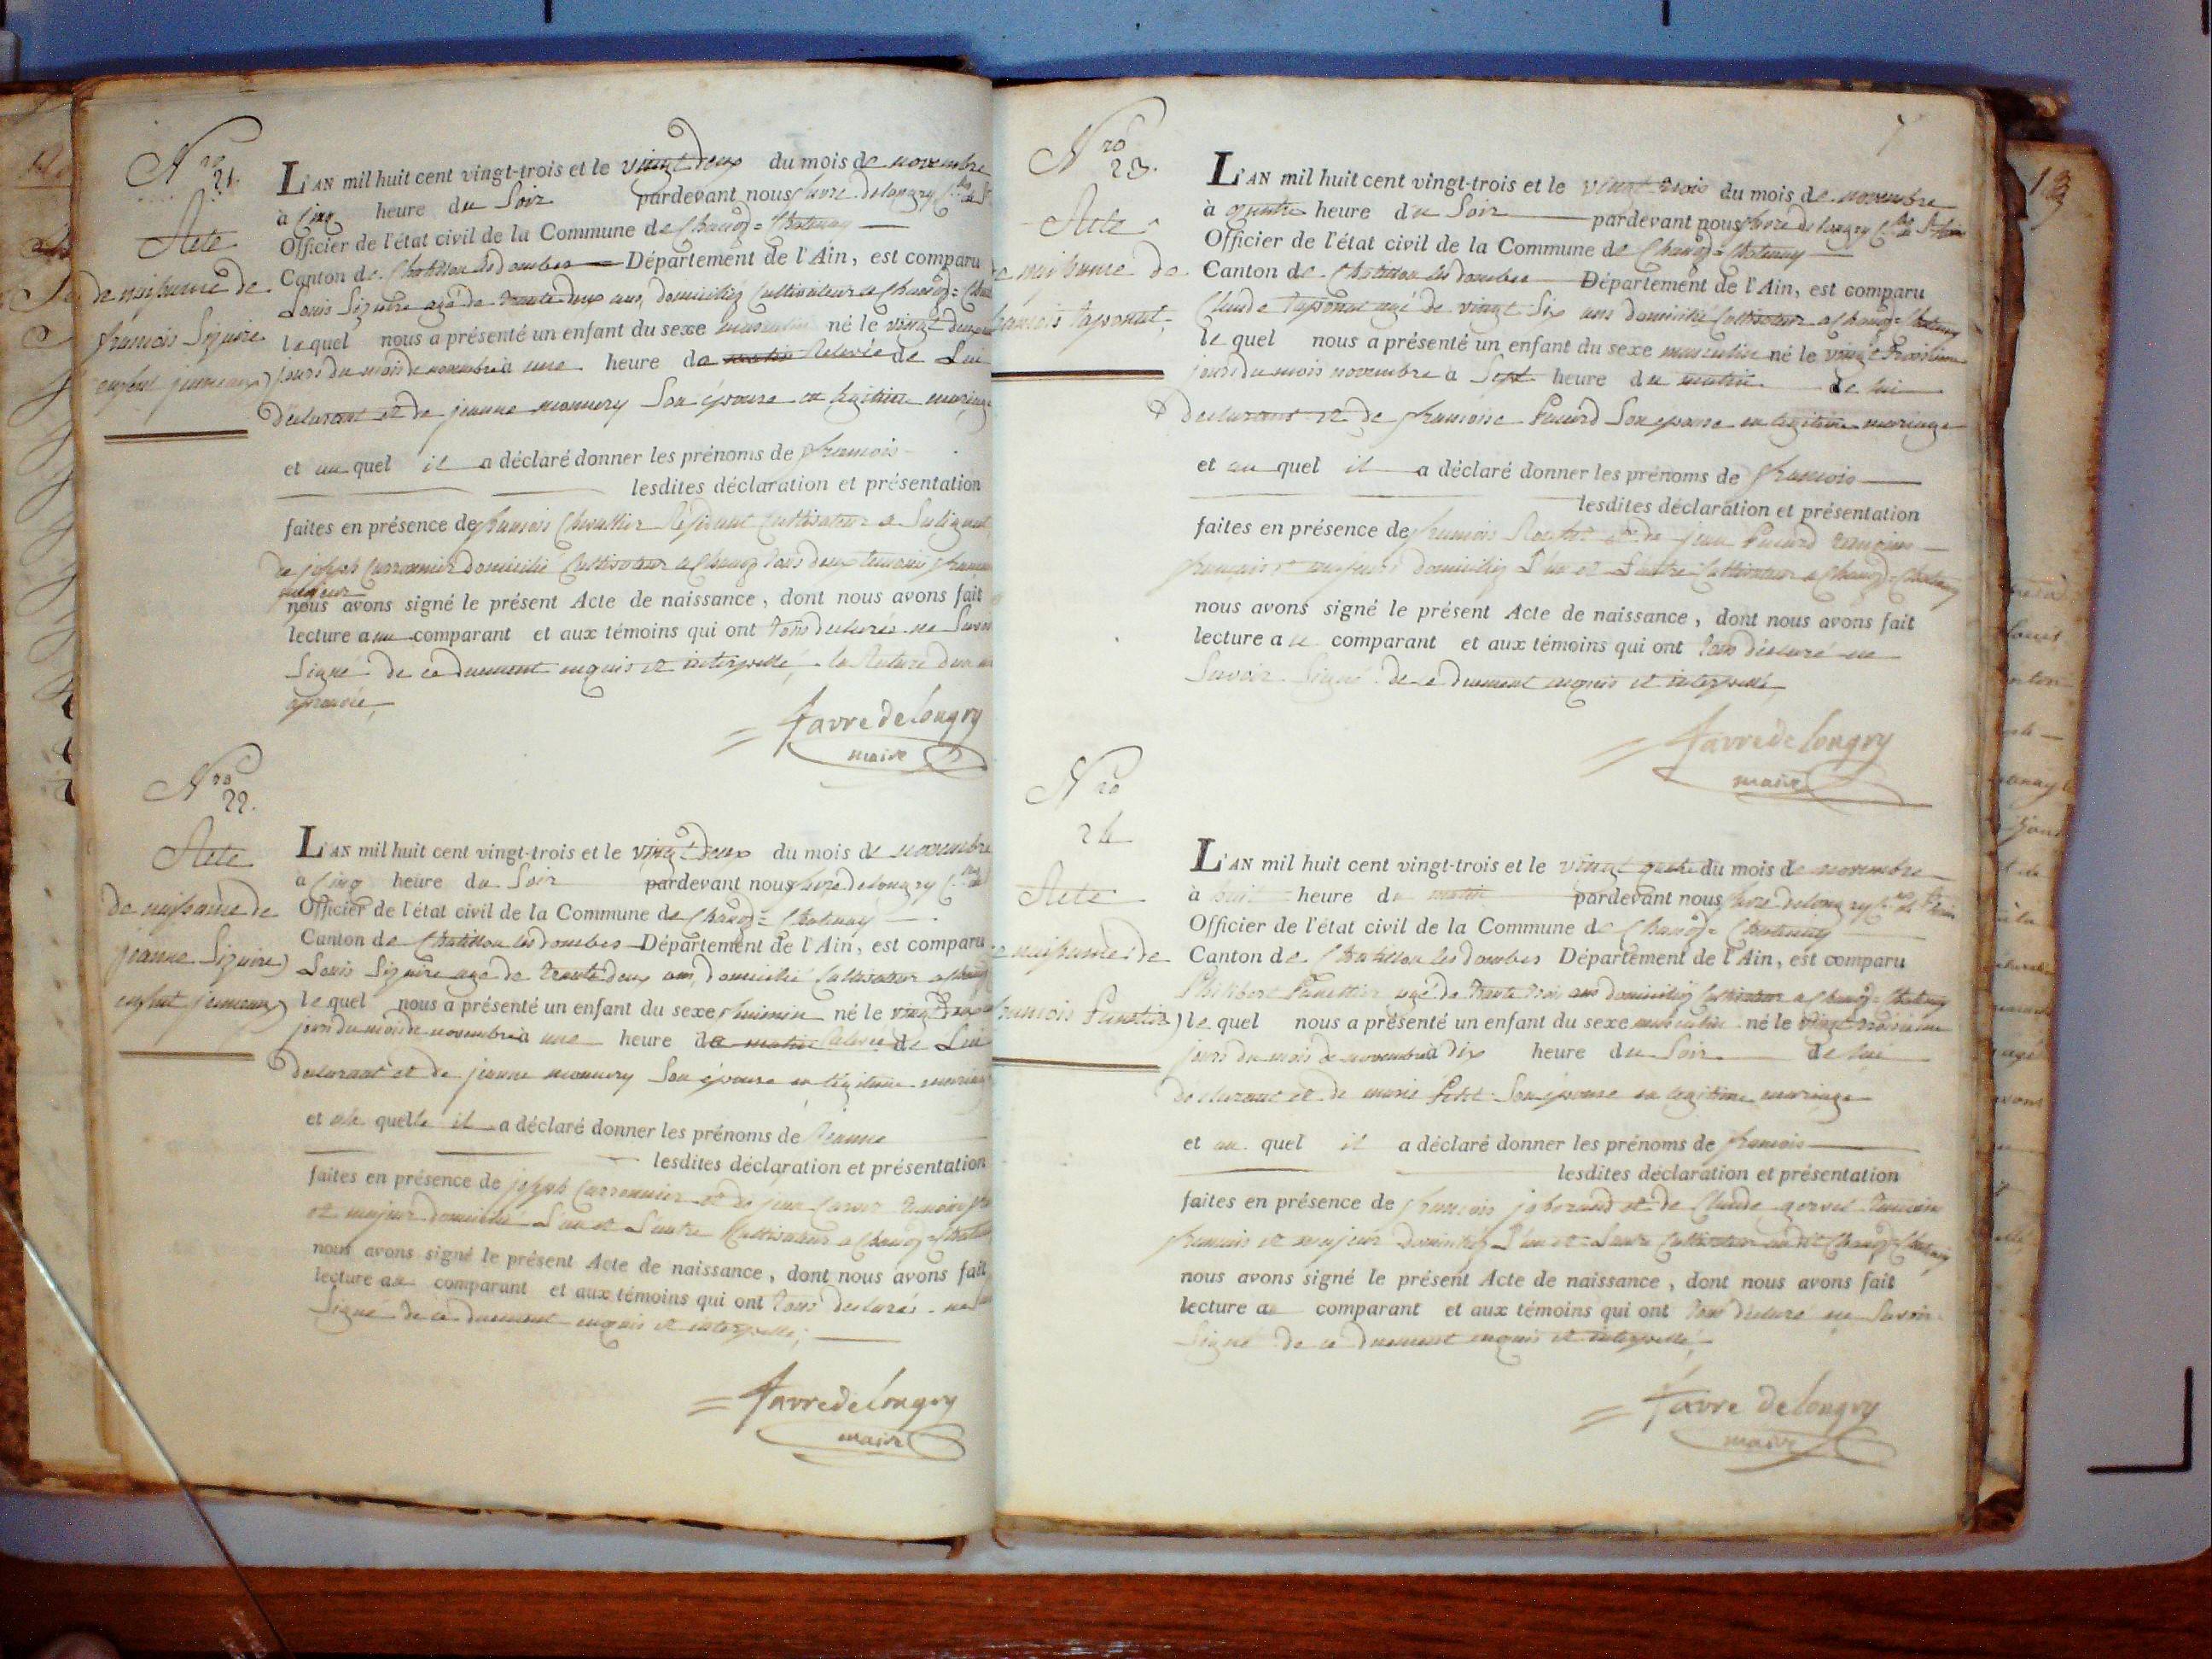 Nro
21.
Acte
de naissance de
francois Siguire
enfent jumeaux
L'AN mil huit cent vingt-trois et le vingt deux du mois de novembre
à Cinq heure du Soir pardevant nous favre delongry
Officier de l'état civil de la Commune de Chanoz=Chatenay
Canton de Chatillon les dombes Département de l'Ain, est comparu
Louis Siguire agé de trente deux ans, domicilié Cultivateur a Chanoz=
lequel nous a présenté un enfant du sexe masculin né le vingt deux
jours du mois de novembre à une heure de matin Relevée de Lui
déclarant et de jeanne monnery Son épouse en légitime mariage
et au quel il a déclaré donner les prénoms de francois
lesdites déclaration et présentation
faites en présence de francois Chevallier Résidant Cultivateur a Sulignat
de joseph Carronnier domicilié Cultivateur a Chanoz tous deux temoins
majeur
nous avons signé le présent Acte de naissance, dont nous avons fait
lecture au comparant et aux témoins qui ont tous déclarés ne Savoir
Signé de ce duement enquis et interpellé, la Rature
aprouvée,
Favre de Longry
maire
Nro
22.
Acte
de naissance de
jeanne Siguire
enfent jumeaux
L'AN mil huit cent vingt-trois et le vingt deux du mois de novembre
à Cinq heure du Soir pardevant nous favre delongry
Officier de l'état civil de la Commune de Chanoz=Chatenay
Canton de Chatillon les dombes Département de l'Ain, est comparu
Louis Siguire age de trente deux ans, domicilié Cultivateur a
lequel nous a présenté un enfant du sexe feminin né le vingt deux
jour du mois de novembre à une heure de matin Relevée de Lui
declarant et de jeanne monnery Son épouse en légitime mariage
et a la quelle il a déclaré donner les prénoms de Jeanne
lesdites déclaration et présentation
faites en présence de joseph Carronnier et de jean temoins
et majeur domicilié L'un et L'autre Cultivateur a Chanoz=
nous avons signé le présent Acte de naissance, dont nous avons fait
lecture au comparant et aux témoins qui ont tous declarés ne
Signé de ce duement enquis et interpellé;
Favre de Longry
maire
7
Nro
23.
Acte
de naissance de
francois Taponat
L'AN mil huit cent vingt-trois et le vingt trois du mois de novembre
à quatre heure du Soir pardevant nous favre de longry
Officier de l'état civil de la Commune de Chanoz=Chatenay
Canton de Chatillon les dombes Département de l'Ain, est comparu
Claude Taponat agé de vingt Six ans domicilié Cultivateur a Chanoz=Chatenay
le quel nous a présenté un enfant du sexe masculin né le vingt troisieme
jour du mois novembre a Sept heure du matin de lui
declarant et de francoise Pacard Son epouse en legitime mariage
et au quel il a déclaré donner les prénoms de francois
lesdites déclaration et présentation
faites en présence de francois et de jean Pacard temoins
francais et majeurs domiciliés L'un et L'autre Cultivateur a Chanoz=Chatenay
nous avons signé le présent Acte de naissance, dont nous avons fait
lecture a le comparant et aux témoins qui ont tous déclaré ne
Savoir Signé de ce duement enquis et interpellé,
Favre de Longry
maire
Nro
24
Acte
de naissance de
francois
L'AN mil huit cent vingt-trois et le vingt quatre du mois de novembre
à huit heure du matin pardevant nous favre delongry
Officier de l'état civil de la Commune de Chanoz=Chatenay
Canton de Chatillon les dombes Département de l'Ain, est comparu
Philibert agé de trente trois ans domicilié Cultivateur a Chanoz=Chatenay
lequel nous a présenté un enfant du sexe masculin né le vingt troisieme
jours du mois de novembre à dix heure du Soir de lui
déclarant et de marie Petit Son épouse en legitime mariage
et au quel il a déclaré donner les prénoms de francois
lesdites déclaration et présentation
faites en présence de francois et de Claude temoins
francais et majeur domicilié L'un et L'autre Cultivateur audit Chanoz=Chatenay
nous avons signé le présent Acte de naissance, dont nous avons fait
lecture au comparant et aux témoins qui ont tous déclaré ne Savoir
Signé de ce duement enquis et interpellé,
Favre de Longry
maire